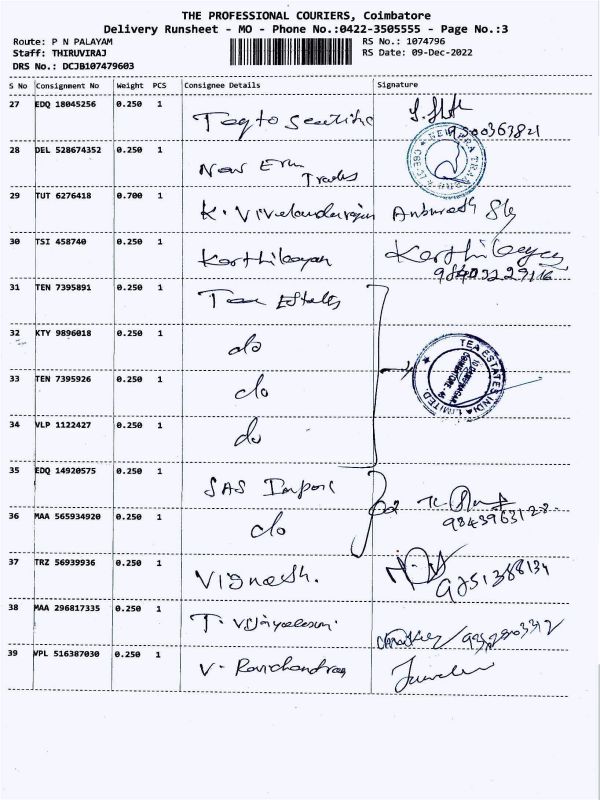 THE PROFESSIONAL COURIERS, Coimbatore
Delivery Runsheet - MO - Phone No.:0422-3505555 - Page No.:3
Route: P N PALAYAM
Staff: THIRUVIRAJ
DRS No.: DCJB107479603
RS No.: 1074796
RS Date: 09-Dec-2022
S No Consignment No Weight PCS Consignee Details Signature
27 EDQ 18045256 0.250 1
28 DEL 528674352 0.250 1 New Era Trades
NEW ERA TRADING
29 TUT 6276418 0.700 1 K. Vivekandarajan
30 TSI 458740 0.250 1 Karthikeyan Karthikeyan
31 TEN 7395891 0.250 1 Tea Estates
32 KTY 9896018 0.250 1 do
TEA ESTATES INDIA LIMITED
33 TEN 7395926 0.250 1 do
34 VLP 1122427 0.250 1 do
35 EDQ 14920575 0.250 1 SAS Impex
36 MAA 565934920 0.250 1 do
37 TRZ 56939936 0.250 1 Vignesh.
9751388134
38 MAA 296817335 0.250 1
39 VPL 516387030 0.250 1 V. Ravichandran